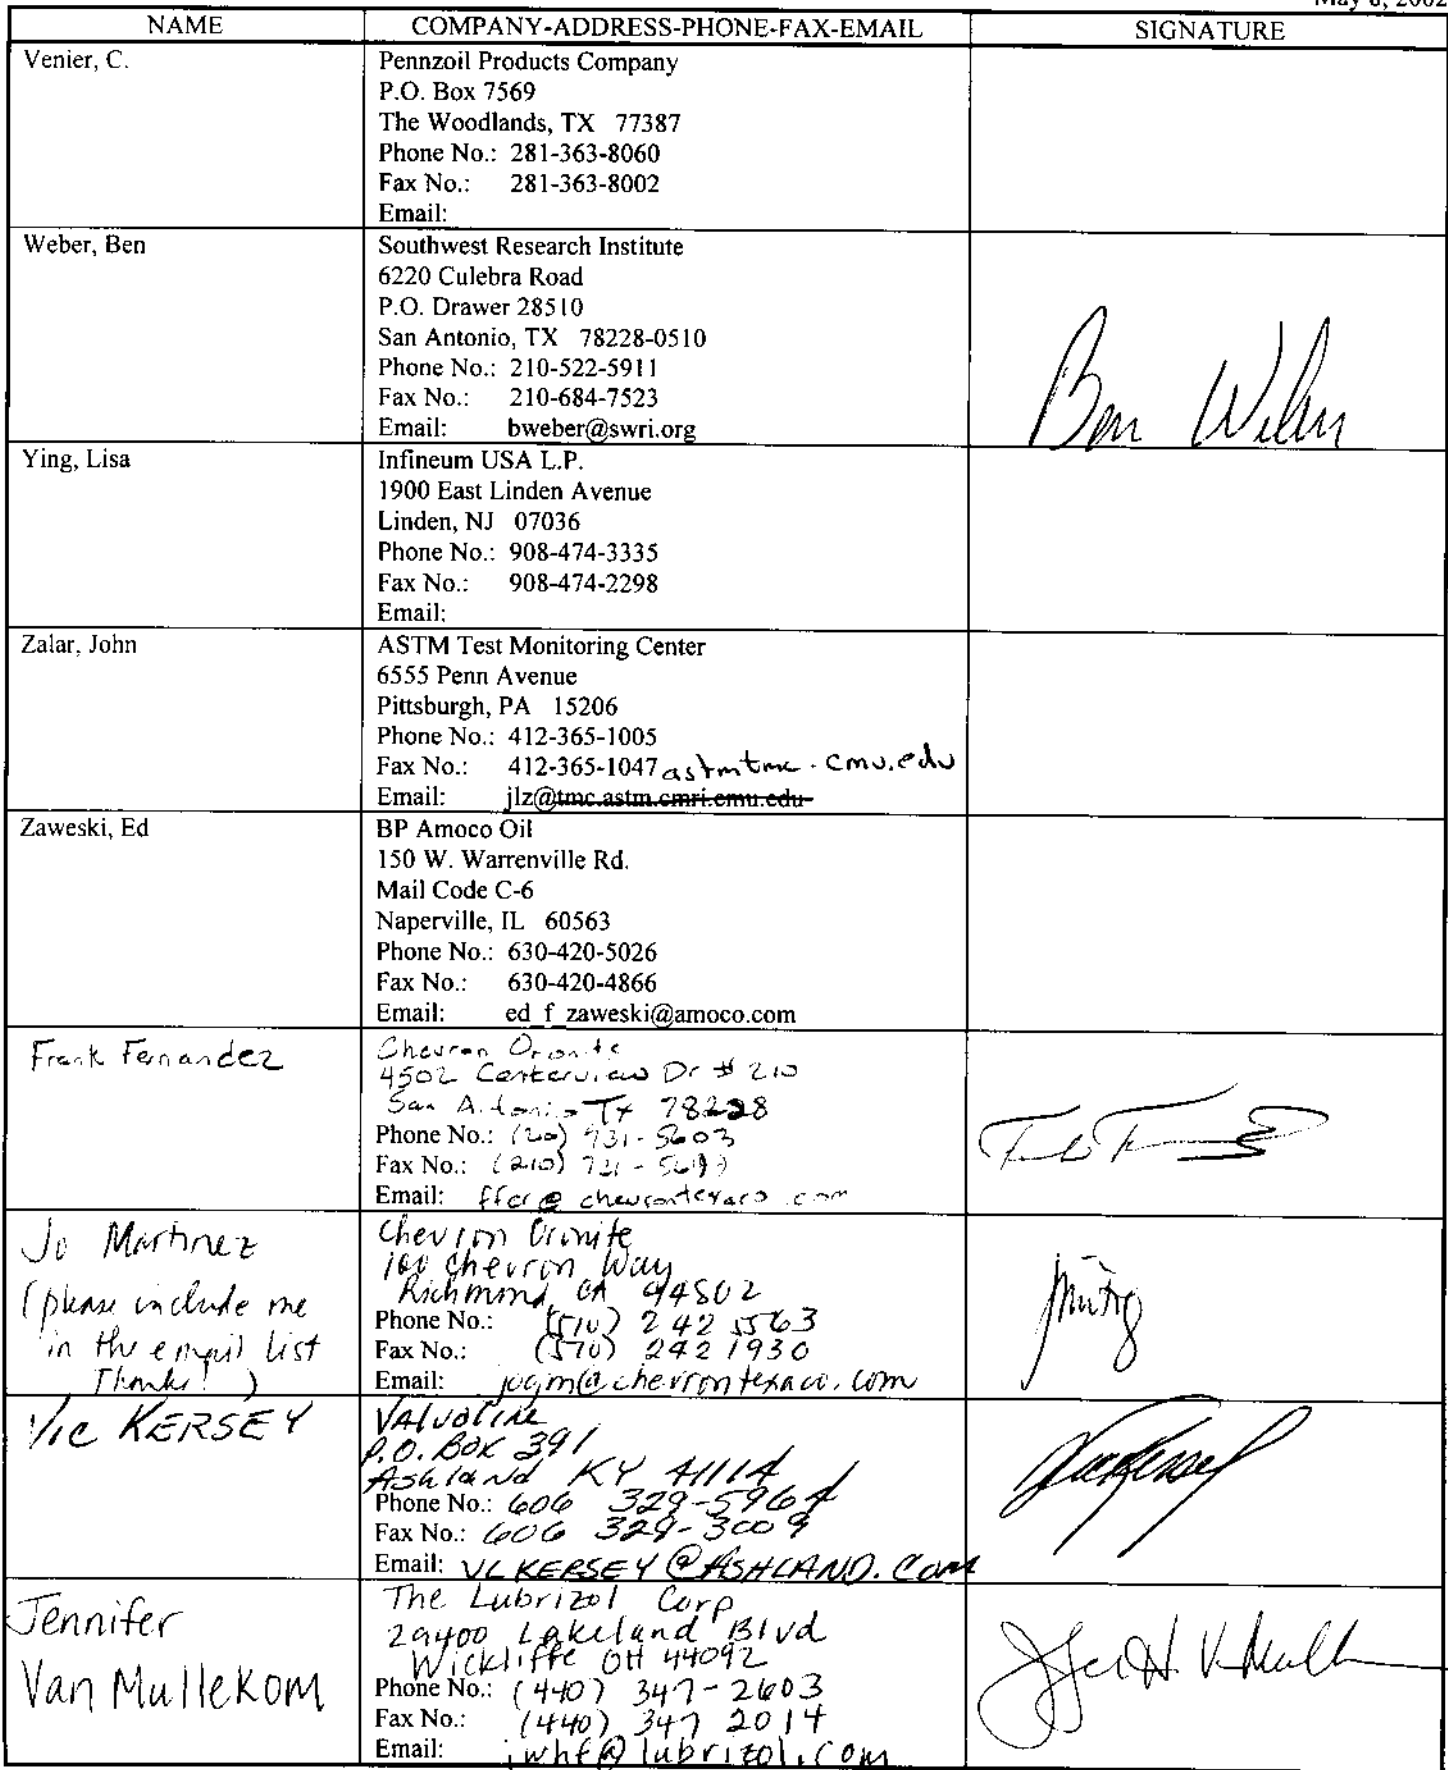 NAME
COMPANY-ADDRESS-PHONE-FAX-EMAIL
SIGNATURE
Venier, C.
Pennzoil Products Company
P.O. Box 7569
The Woodlands, TX 77387
Phone No.: 281-363-8060
Fax No.: 281-363-8002
Email:
Weber, Ben
Southwest Research Institute
6220 Culebra Road
P.O. Drawer 28510
San Antonio, TX 78228-0510
Phone No.: 210-522-5911
Fax No.: 210-684-7523
Email: bweber@swri.org
Ben Weber
Ying, Lisa
Infineum USA L.P.
1900 East Linden Avenue
Linden, NJ 07036
Phone No.: 908-474-3335
Fax No.: 908-474-2298
Email:
Zalar, John
ASTM Test Monitoring Center
6555 Penn Avenue
Pittsburgh, PA 15206
Phone No.: 412-365-1005
Fax No.: 412-365-1047 astmtmc.cmu.edu
Email: jlz@tmc.astm.cmri.cmu.edu
Zaweski, Ed
BP Amoco Oil
150 W. Warrenville Rd.
Mail Code C-6
Naperville, IL 60563
Phone No.: 630-420-5026
Fax No.: 630-420-4866
Email: ed_f_zaweski@amoco.com
Frank Fernandez
Chevron Oronite
4502 Centerview Dr # 210
San Antonio TX 78228
Phone No.: 
Fax No.: (210)
Email: ffer@chevrontexaco.com
Jo Martinez
(please include me
in the email list
Thanks! )
Chevron Oronite
100 Chevron Way
Richmond, CA 94802
Phone No.: (510) 242 5563
Fax No.: (510) 242 1930
Email: jogm@chevrontexaco.com
Vic KERSEY
Valvoline
P.O. Box 391
Ashland KY 41114
Phone No.: 606 329-5964
Fax No.: 606 329-3009
Email: VLKERSEY@ASHLAND.Com
Jennifer
Van Mullekom
The Lubrizol Corp
29400 Lakeland Blvd
Wickliffe OH 44092
Phone No.: (440) 347-2603
Fax No.: (440) 347 2014
Email: jwhf@lubrizol.com